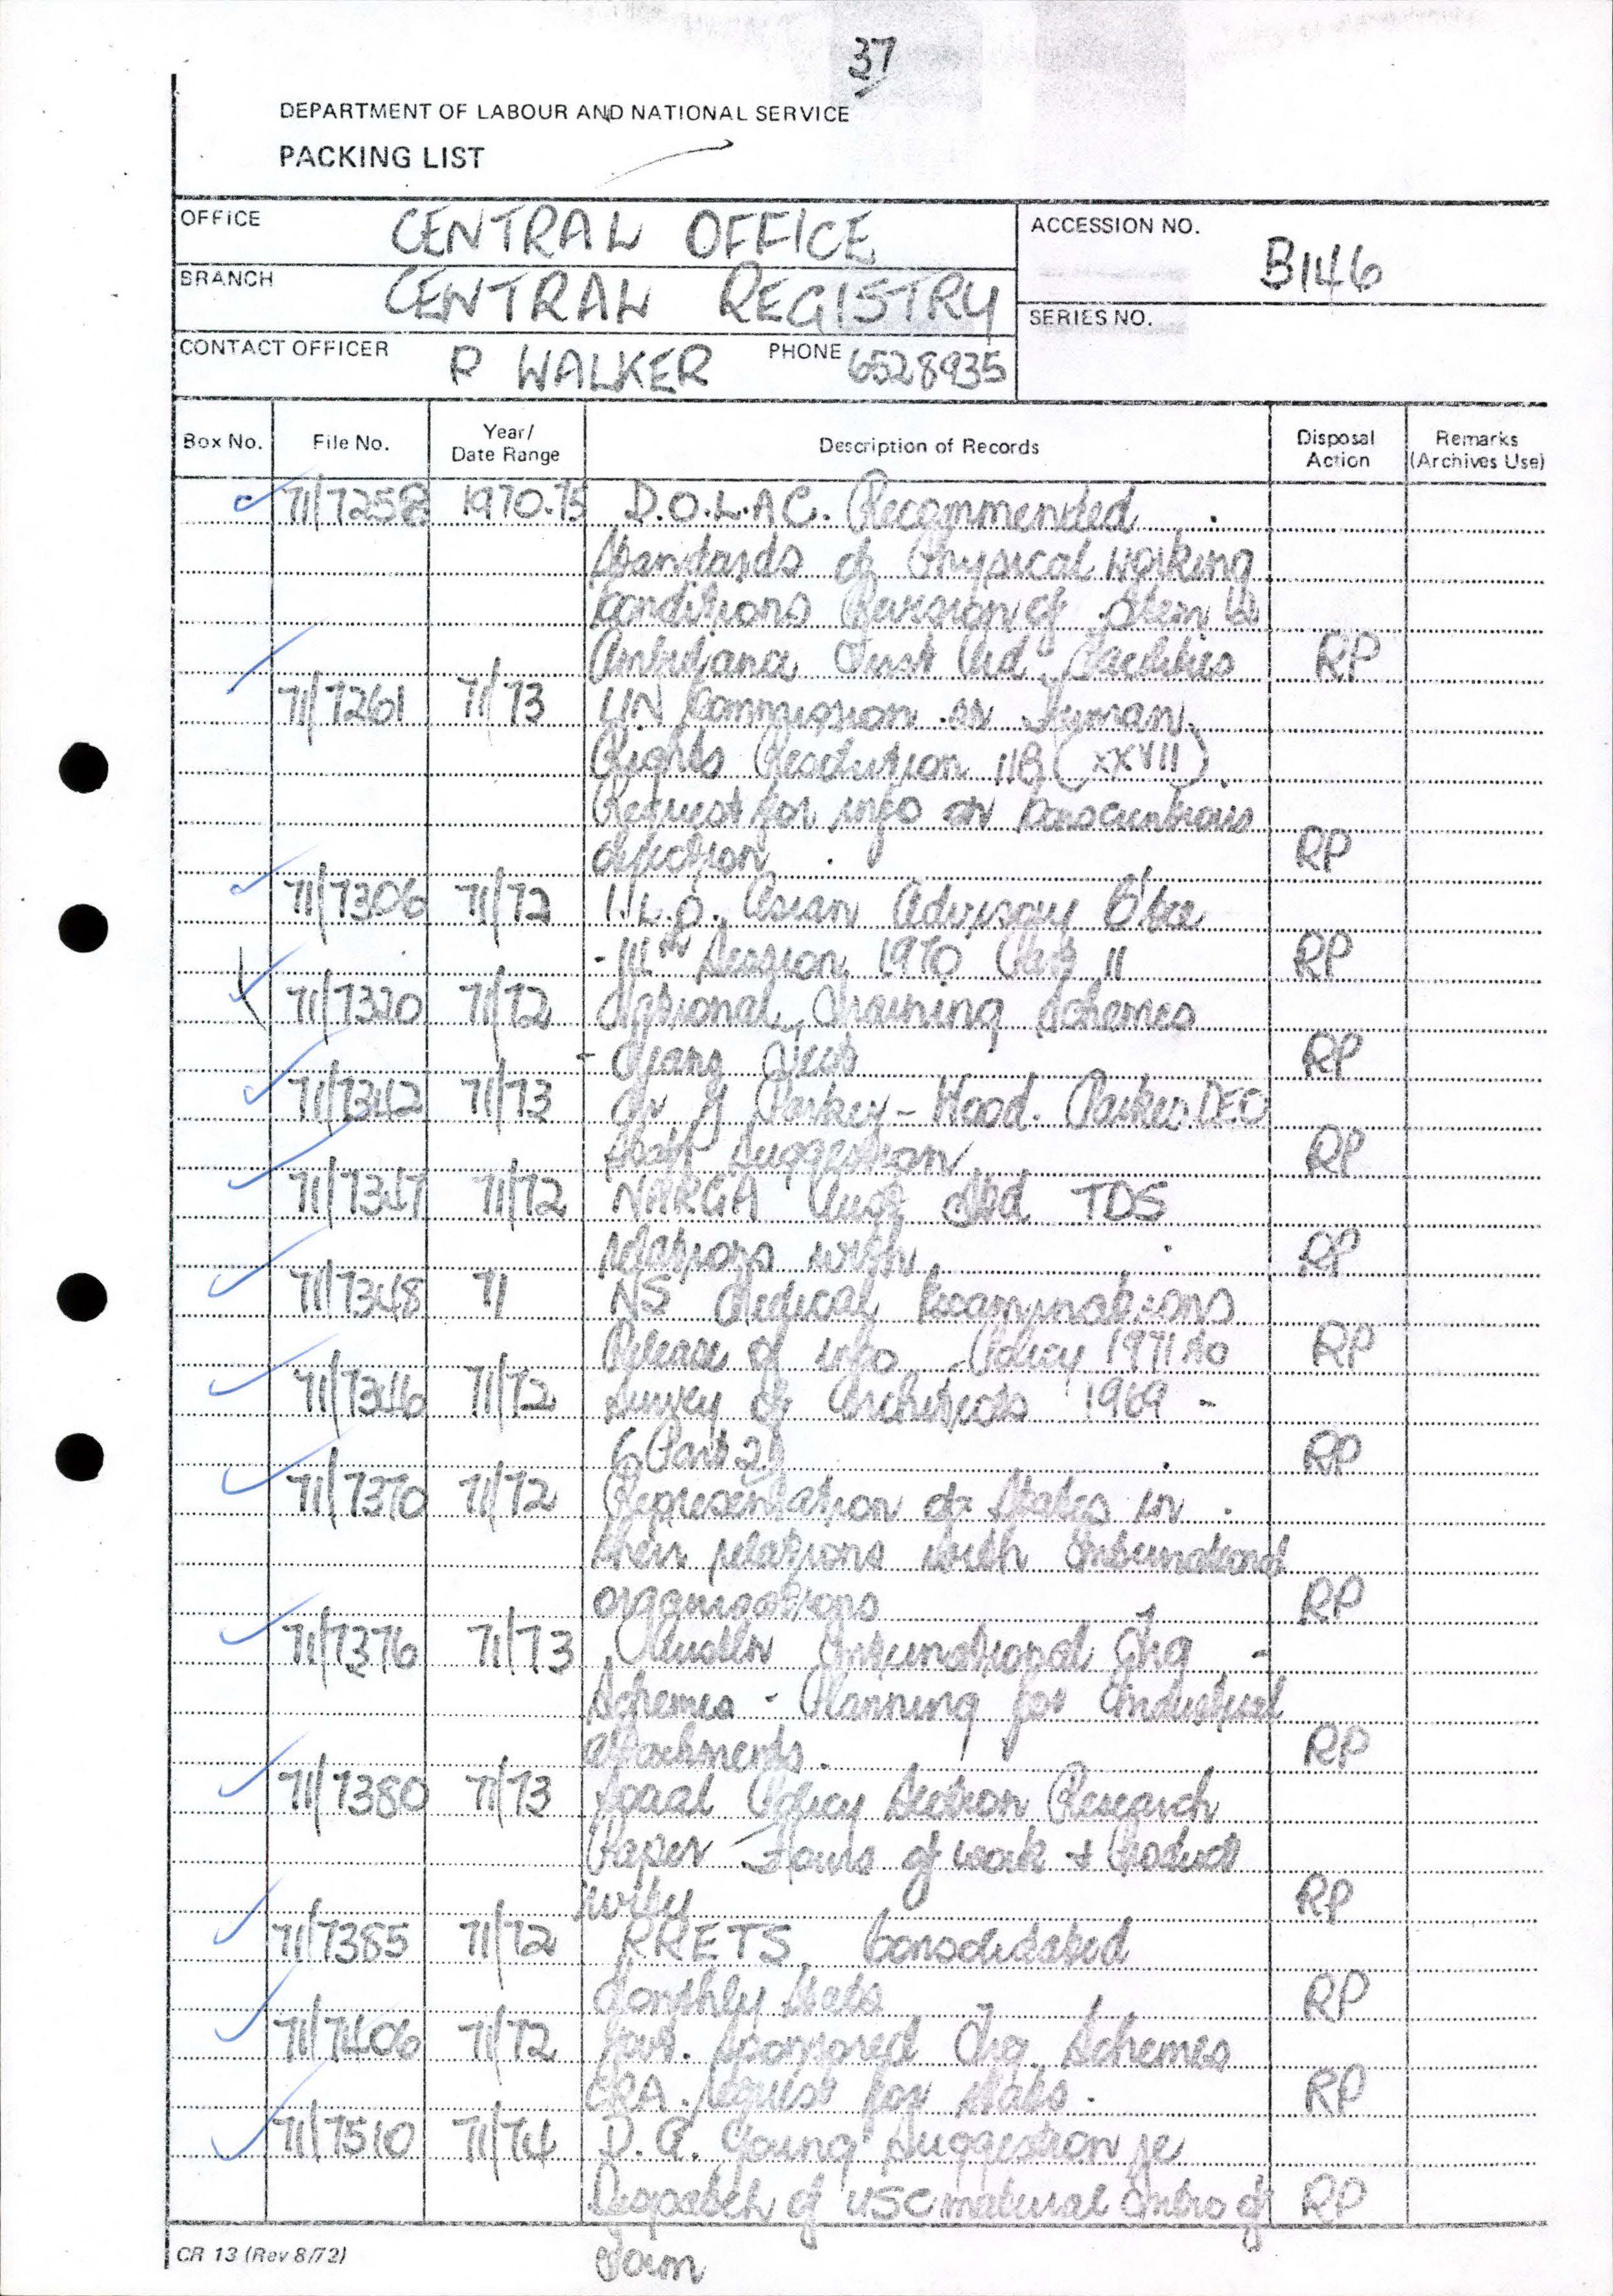 37
DEPARTMENT OF LABOUR AND NATIONAL SERVICE
PACKING LIST
OFFICE CENTRAL OFFICE ACCESSION NO. B146
BRANCH CENTRAL REGISTRY SERIES NO.
CONTACT OFFICER P WALKER PHONE 6528935
Box No. File No. Year/ Date Range Description of Records Disposal Action Remarks (Archives Use)
71/7258 1970-75 D.O.L.A.C. Recommended
Standards of Physical Working
Conditions Revision of Item
Ambulance First Aid Facilities RP
71/7261 71/73 UN Commission on Human
Rights Resolution 11B (XXVII)
Request for info on Conscientious
objection RP
71/7306 71/72 I.L.O. Asian Advisory C'tee
- 14th Session 1970 Part II RP
71/7320 71/72 National Training Schemes
RP
71/7342 71/73 Mr G Parker - Hood. Parkes DEO
Staff Suggestion RP
71/7347 71/72 NARGA Aust Ltd TDS
relations with RP
71/7348 71 NS Medical Examinations
Release of info Policy 1971 to RP
71/7346 71/72 Survey of Architects 1969 -
(Part 2) RP
71/7370 71/72 Representation of States in
their relations with International
organisations RP
71/7376 71/73 International Trg -
Schemes - Planning for Industrial
attachments. RP
71/7380 71/73 Social Policy Section Research
Paper Hours of work + Product
ivity RP
71/7385 71/72 RRETS Consolidated
Monthly Stats RP
71/7406 71/72 Govt. Sponsored Trg. Schemes
CRA. request for stats. RP
71/7510 71/74 D. A. Young Suggestion re
Despatch of USC material Intro of RP
Form
CR 13 (Rev 8/72)